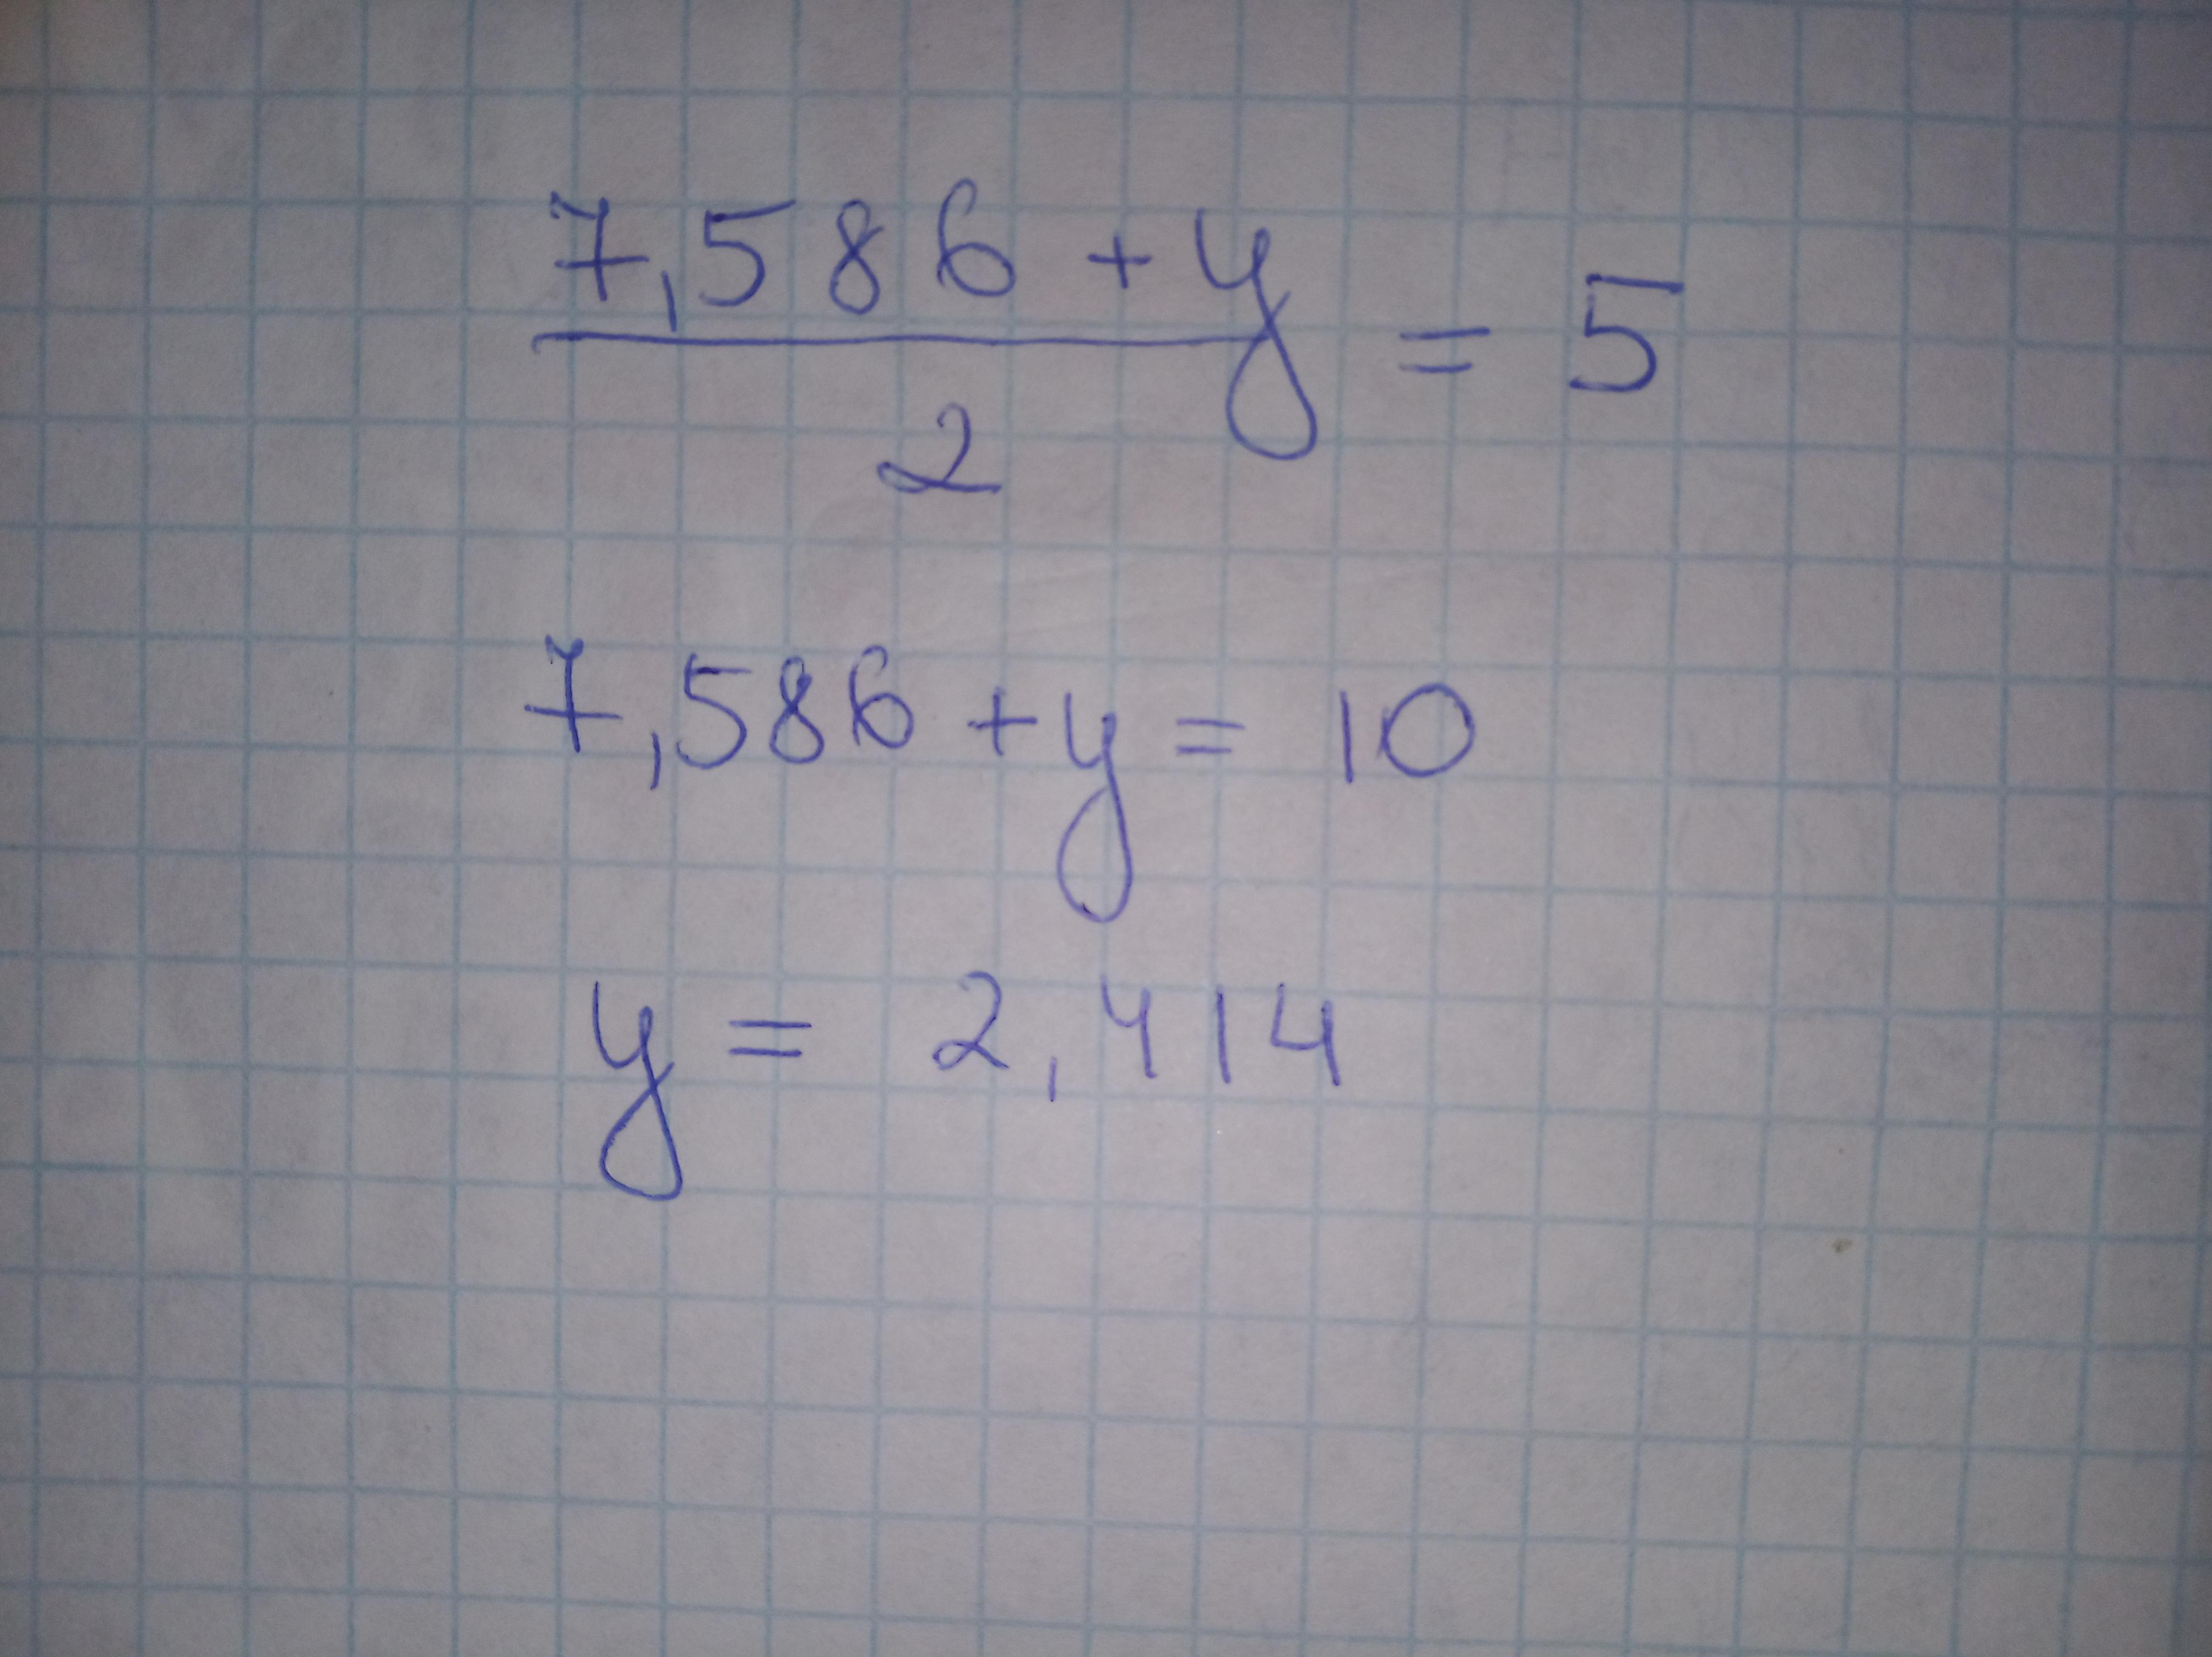 7,586 + y / 2 = 5
7,586 + y = 10
y = 2,414